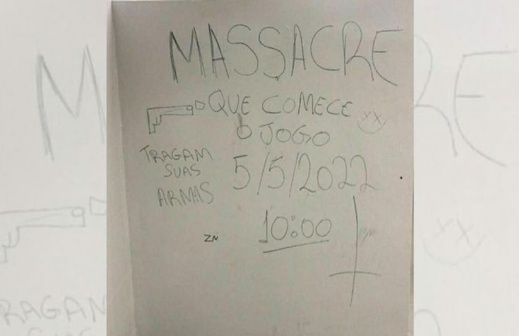 MASSACRE
QUE COMECE
O JOGO
XX
TRAGAM
SUAS
ARMAS
5/5/2022
10:00
ZN